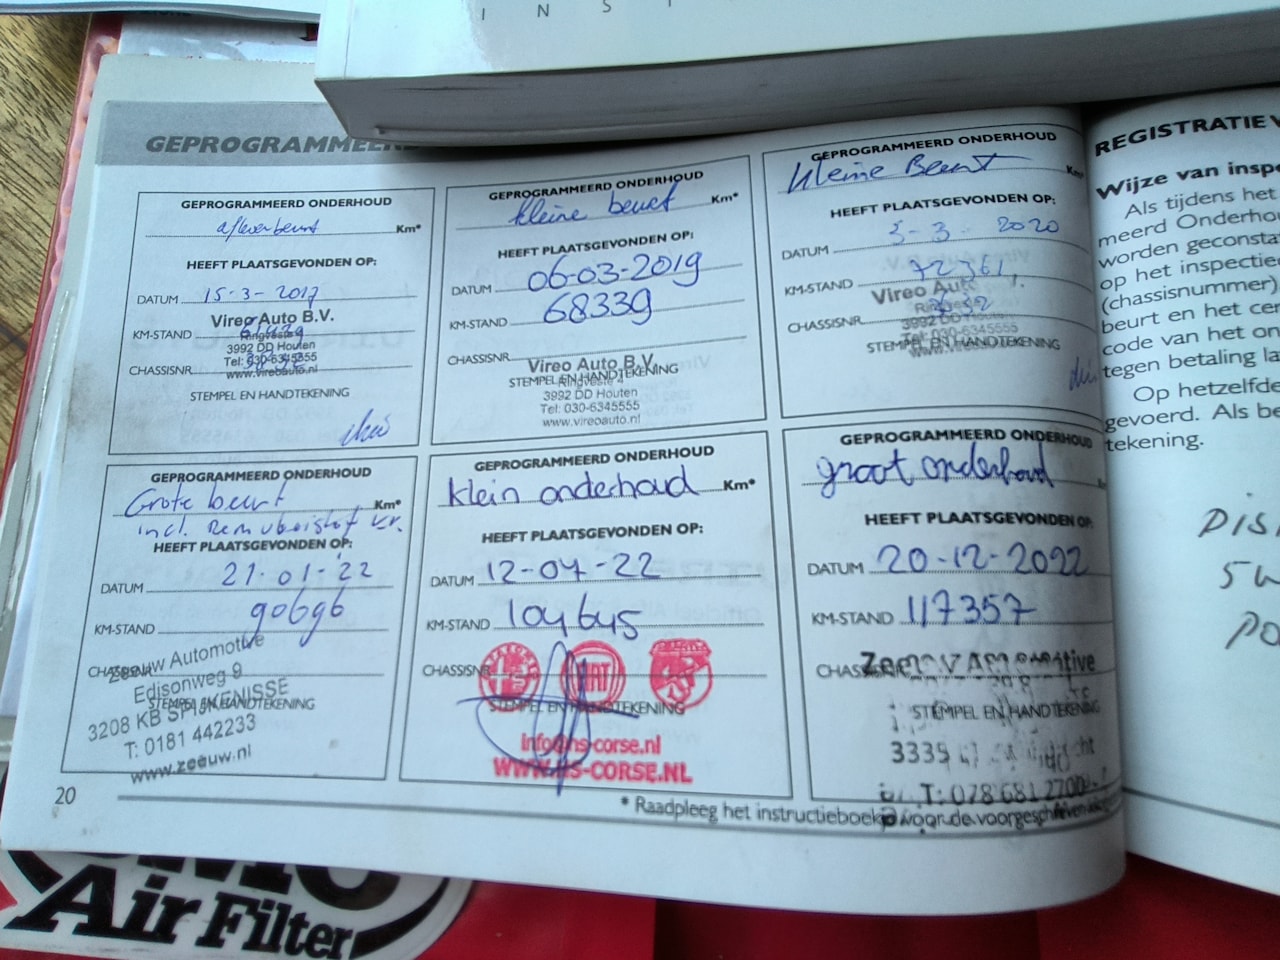 I N S T
GEPROGRAMMEER
GEPROGRAMMEERD ONDERHOUD
afleverbeurt Km*
HEEFT PLAATSGEVONDEN OP:
DATUM 15-3-2017
KM-STAND
Vireo Auto B.V.
Ringveste 4
3992 DD Houten
Tel: 030-6345555
www.vireoauto.nl
CHASSISNR.
STEMPEL EN HANDTEKENING
GEPROGRAMMEERD ONDERHOUD
kleine beurt Km*
HEEFT PLAATSGEVONDEN OP:
DATUM 06-03-2019
KM-STAND 68339
CHASSISNR.
Vireo Auto B.V.
STEMPEL EN HANDTEKENING
Ringveste 4
3992 DD Houten
Tel: 030-6345555
www.vireoauto.nl
GEPROGRAMMEERD ONDERHOUD
kleine Beurt Km*
HEEFT PLAATSGEVONDEN OP:
DATUM 5-3-2020
KM-STAND 72361
Vireo Auto
Ringveste
CHASSISNR.
3992 DD Houten
Tel: 030-6345555
STEMPEL EN HANDTEKENING
GEPROGRAMMEERD ONDERHOUD
Grote beurt Km*
incl. Remvloeistof vv.
HEEFT PLAATSGEVONDEN OP:
DATUM 21-01-'22
KM-STAND 90696
CHASSISNR.
Zeeuw Automotive
Edisonweg 9
STEMPEL EN HANDTEKENING
3208 KB SPIJKENISSE
T: 0181 442233
www.zeeuw.nl
GEPROGRAMMEERD ONDERHOUD
klein onderhoud Km*
HEEFT PLAATSGEVONDEN OP:
DATUM 12-04-22
KM-STAND 104645
CHASSISNR.
FIAT
STEMPEL EN HANDTEKENING
info@hs-corse.nl
WWW.HS-CORSE.NL
GEPROGRAMMEERD ONDERHOUD
groot onderhoud
HEEFT PLAATSGEVONDEN OP:
DATUM 20-12-2022
KM-STAND 117357
CHASSISNR.
Zeeuw Automotive
STEMPEL EN HANDTEKENING
3335
T: 078 681 2700
20
* Raadpleeg het instructieboekje voor de voorgeschreven
REGISTRATIE V
Wijze van inspe
Als tijdens het
meerd Onderho
worden geconsta
op het inspectie
(chassisnummer)
beurt en het cer
code van het on
tegen betaling la
Op hetzelfde
gevoerd. Als be
tekening.
DIS
5W
PO
Air Filter